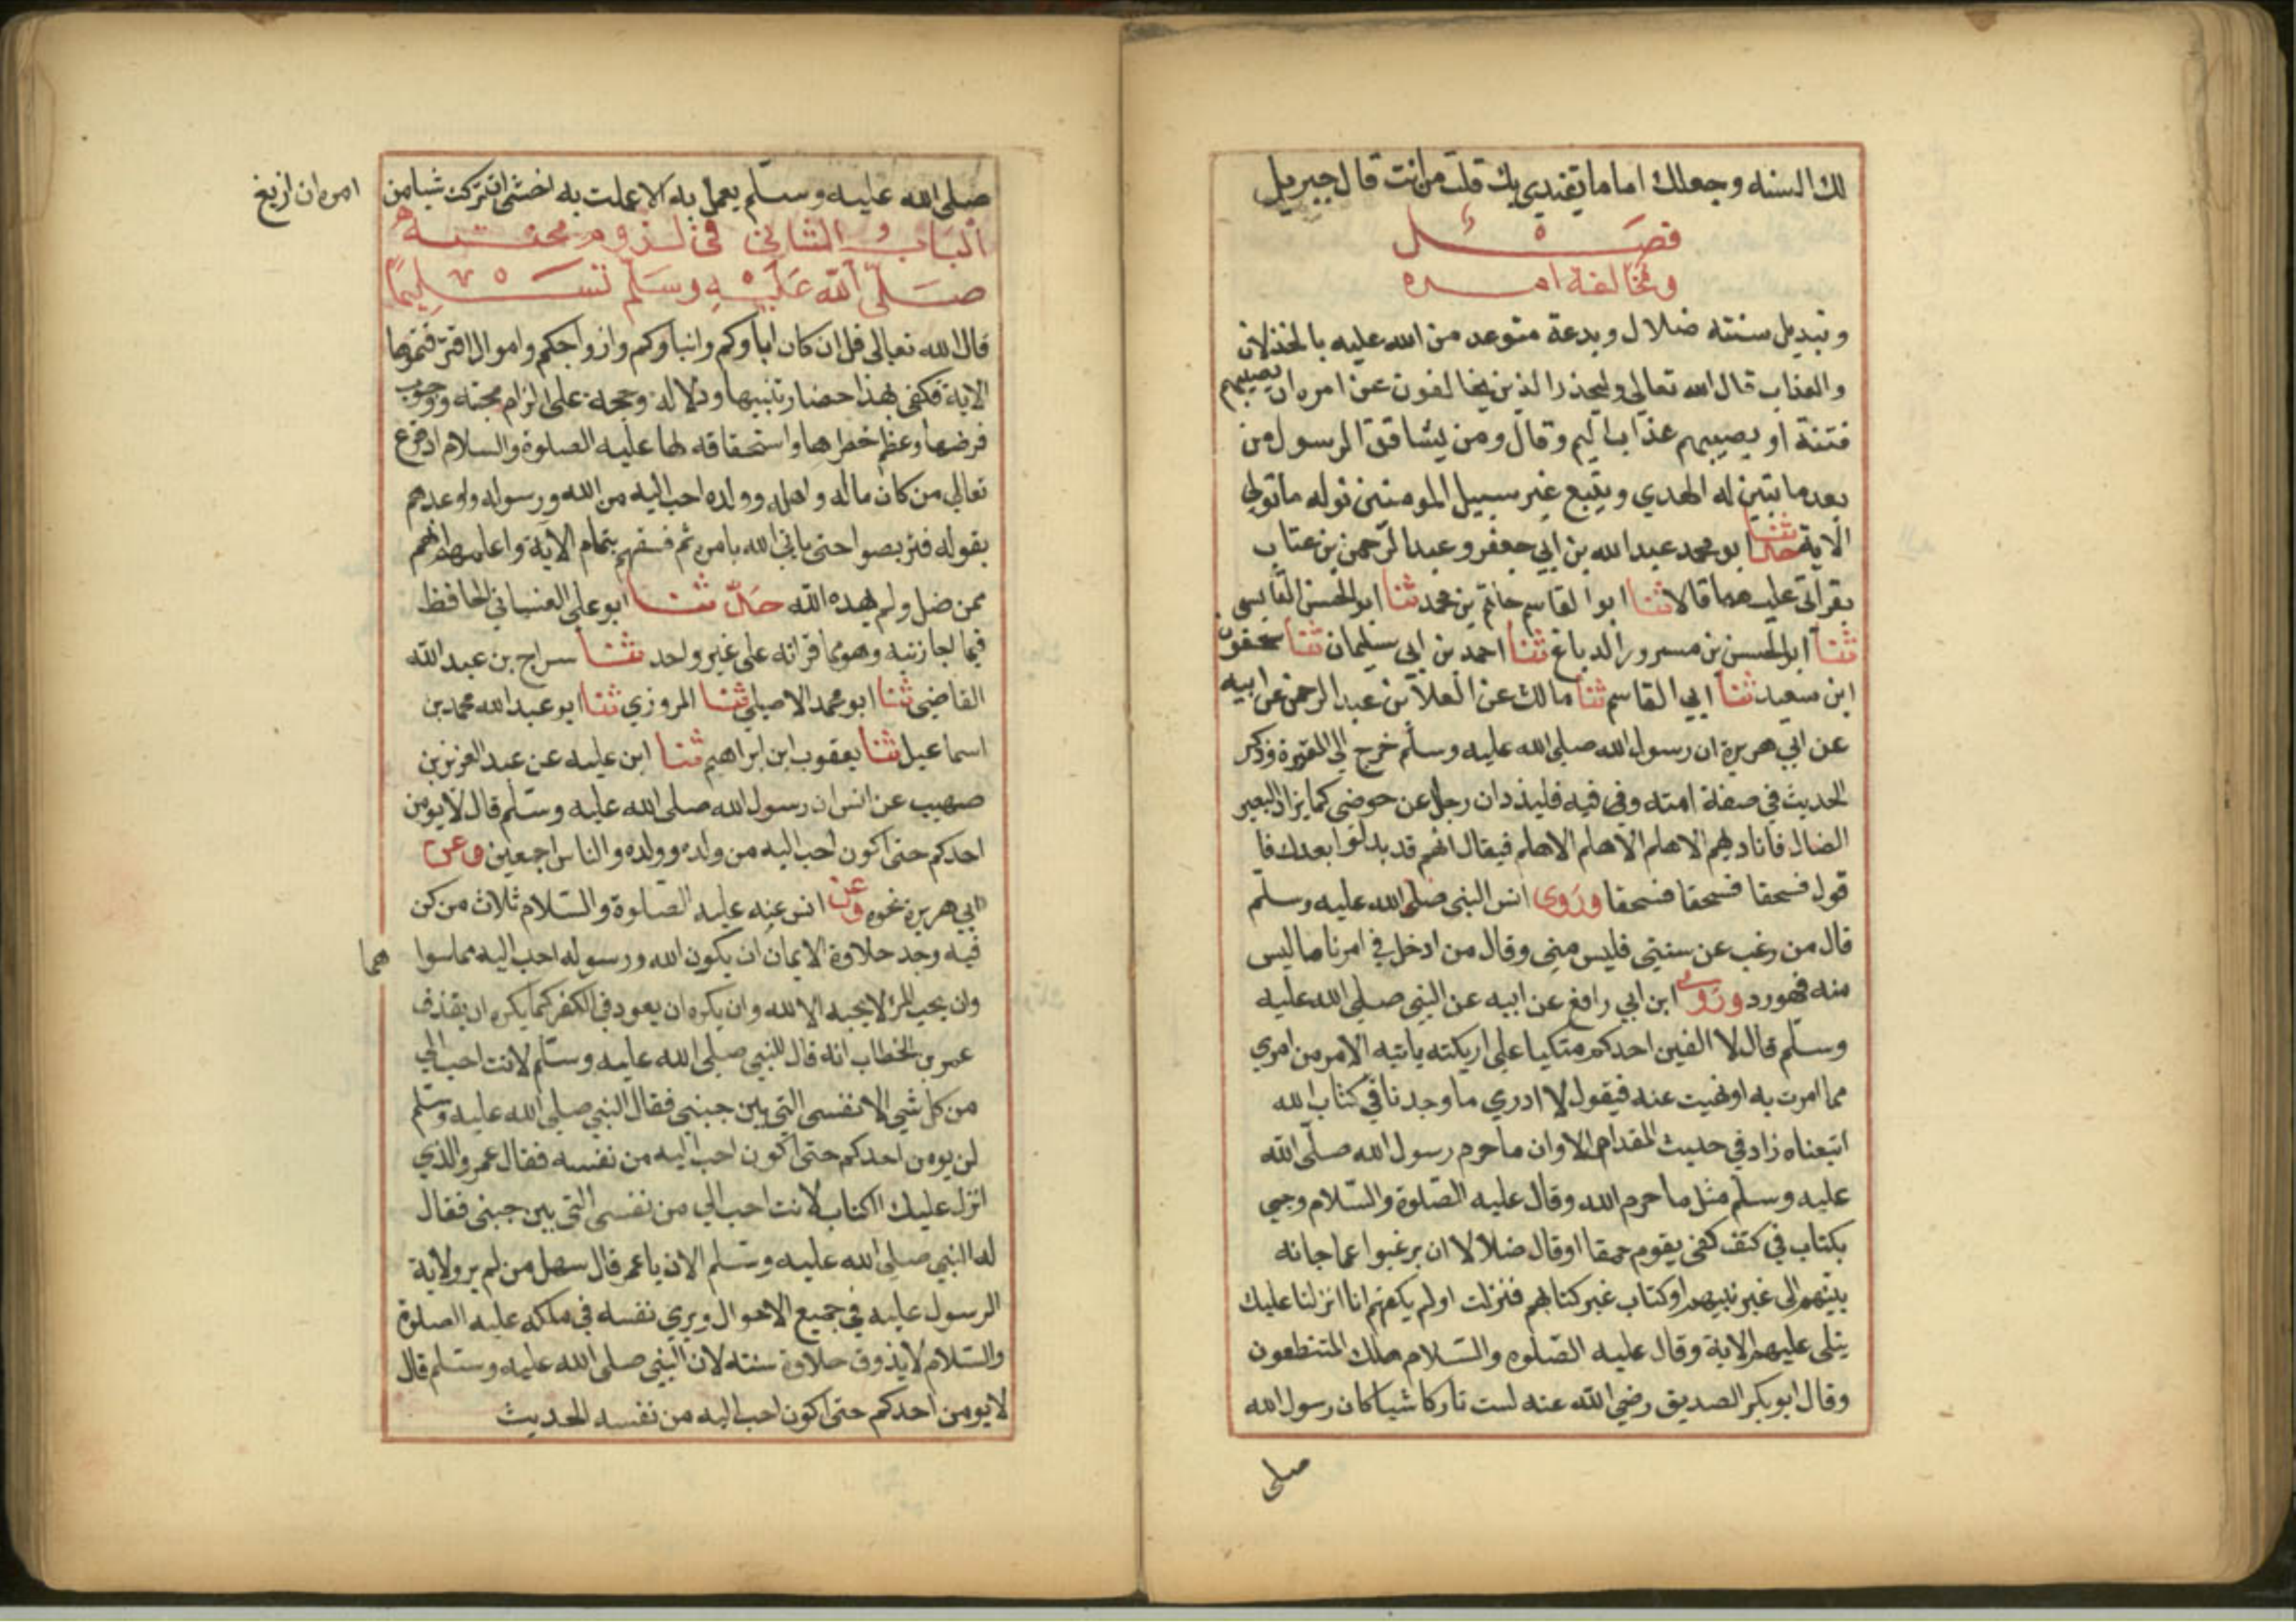 لك السنه وجعلك اماما يقتدي بك قلت من انت قال جبريل
فصل
ومخالفة امره
وتبديل سنته ضلال وبدعة متوعد من الله عليه بالخذلان
والعذاب قال الله تعالى وليحذر الذين يخالفون عن امره ان يصيبهم
فتنة او يصيبهم عذاب اليم وقال ومن يشاقق الرسول من
بعد ما تبين له الهدي ويتبع غير سبيل المومنين نوله ما تولي
الاية حدثنا ابو محمد عبد الله بن ابي جعفر وعبد الرحمن بن عتاب
بقرأتي عليهما قالا ثنا ابو القاسم حاتم بن محمد ثنا ابو الحسن القابسي
ثنا ابو الحسن بن مسرور الدباغ ثنا احمد بن ابي سليمان ثنا سحنون
ابن سعيد ثنا ابي القاسم ثنا مالك عن العلا بن عبد الرحمن عن ابيه
عن ابي هريرة ان رسول الله صلى الله عليه وسلم خرج الى المقبرة وذكر
الحديث في صفة امته وفي فيه فليذدان رجل عن حوضي كما يزاد البعير
الضال فاناديهم الا هلم الا هلم الا هلم فيقال انهم قد بدلوا بعدك فا
قول فسحقا فسحقا فسحقا وروى انس النبي صلى الله عليه وسلم
قال من رغب عن سنتي فليس مني وقال من ادخل في امرنا ما ليس
منه فهورد وروى ابن ابي رافع عن ابيه عن النبي صلى الله عليه
وسلم قال لا الفين احدكم متكيا على اريكته ياتيه الامر من امري
مما امرت به او نهيت عنه فيقول لا ادري ما وجدنا في كتاب الله
اتبعناه زاد في حديث المقدام الا وان ما حرم رسول الله صلى الله
عليه وسلم مثل ما حرم الله وقال عليه الصلوة والسلام وجي
بكتاب في كتف كفى بقوم حمقا او قال ضلالا ان يرغبوا عما جانه
بيتهم الى غير نبيهم او كتاب غير كتابهم فنزلت اولم يكفهم انا انزلنا عليك
يتلى عليهم الاية وقال عليه الصلوه والسلام هلك المتنطعون
وقال ابو بكر الصديق رضي الله عنه لست تاركا شيا كان رسول الله
صلى
صلى الله عليه وسلم يعمل به الا عملت به اخشى ان تركت شيا من
امره ان ازيغ
الباب الثاني في لزوم محبته
صلى الله عليه وسلم تسليما
قال الله تعالى قل ان كان اباوكم وابناوكم وازواجكم واموال اقترفتموها
الاية فكفى بهذا حضا وتنبيها ودلالة وحجة على الزام محبته ووجوب
فرضها وعظم خطرها واستحقاقه لها عليه الصلوة والسلام اذ قرع
تعالى من كان ماله واهله وولده احب اليه من الله ورسوله واوعدهم
بقوله فتربصوا حتى ياتي الله بامره ثم فسقهم بتمام الاية واعلمهم انهم
ممن ضل ولم يهده الله حدثنا ابو علي الغساني الحافظ
فيما اجازنيه وهو مما قراته على غير واحد ثنا سراج بن عبد الله
القاضي ثنا ابو محمد الاصيلي ثنا المروزي ثنا ابو عبد الله محمد بن
اسماعيل ثنا يعقوب ابن ابراهيم ثنا ابن عليه عن عبد العزيز بن
صهيب عن انس ان رسول الله صلى الله عليه وسلم قال لا يومن
احدكم حتى اكون احب اليه من ولده وولده والناس اجمعين وعن
ابي هريرة نحوه وعن انس عنه عليه الصلوة والسلام ثلاث من كن
فيه وجد حلاوة الايمان ان يكون الله ورسوله احب اليه مما سوا
هما
وان يحب المرء لا يحبه الا لله وان يكره ان يعود في الكفر كما يكره ان يقذف
عمر بن الخطاب انه قال للنبي صلى الله عليه وسلم لانت احب الي
من كل شي الا نفسي التي بين جنبي فقال النبي صلى الله عليه وسلم
لن يومن احدكم حتى اكون احب اليه من نفسه فقال عمر والذي
انزل عليك الكتاب لانت احب الي من نفسي التي بين جنبي فقال
له النبي صلى الله عليه وسلم الان يا عمر قال سهل من لم ير ولاية
الرسول عليه في جميع الاحوال ويري نفسه في ملكه عليه الصلوة
والسلام لا يذوق حلاوة سنته لان النبي صلى الله عليه وسلم قال
لا يومن احدكم حتى اكون احب اليه من نفسه الحديث